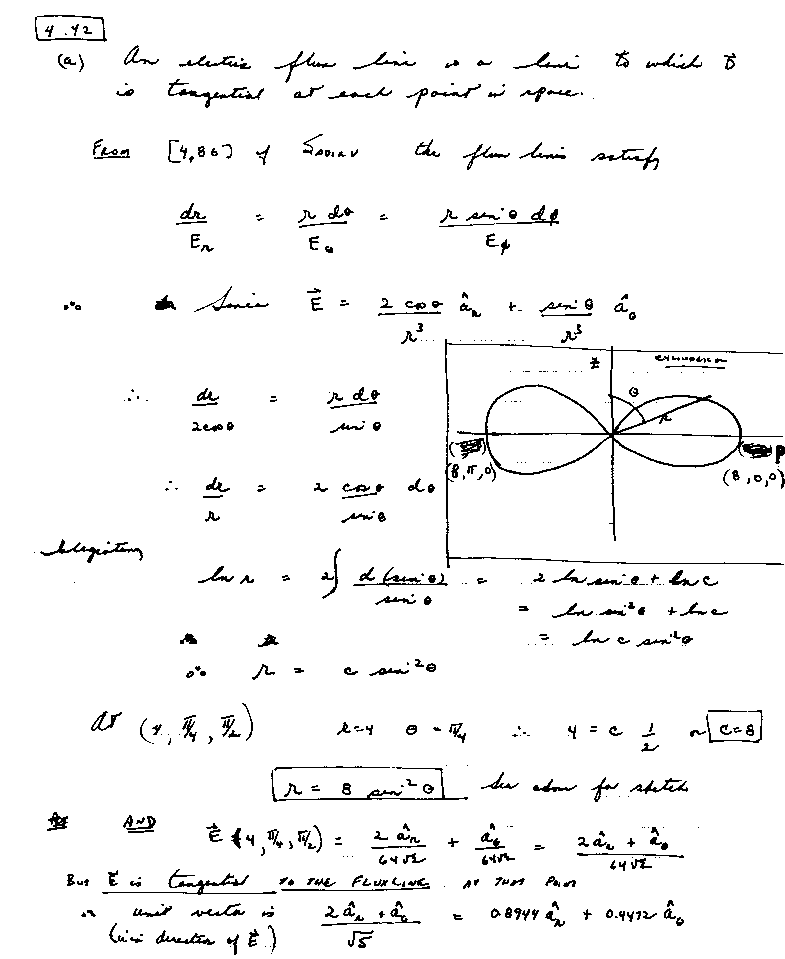 4.42
(a) An electric flux line is a line to which D⃗
is tangential at each point in space.
From [4,86] of Sadiku the flux lines satisfy
dr/E_r = r dθ/E_θ = r sin θ dφ/E_φ
∴ Since E⃗ = 2 cos θ/r³ â_r + sin θ/r³ â_θ
z
θ
r
ρ
(8, π, 0)
(8, 0, 0)
∴ dr/2 cos θ = r dθ/sin θ
∴ dr/r = 2 cos θ/sin θ dθ
Integrating
ln r = 2∫ d(sin θ)/sin θ = 2 ln sin θ + ln c
= ln sin² θ + ln c
= ln c sin² θ
∴ r = c sin² θ
At (4, π/4, π/2) r=4 θ = π/4 ∴ 4 = c 1/2 or c=8
r = 8 sin² θ See above for sketch
AND E⃗ (4, π/4, π/2) = 2 â_r/64√2 + â_θ/64√2 = 2 â_r + â_θ/64√2
But E⃗ is tangential TO THE FLUXLINE AT THAT POINT
∴ unit vector is 2 â_r + â_θ/√5 = 0.8944 â_r + 0.4472 â_θ
(in direction of E⃗)